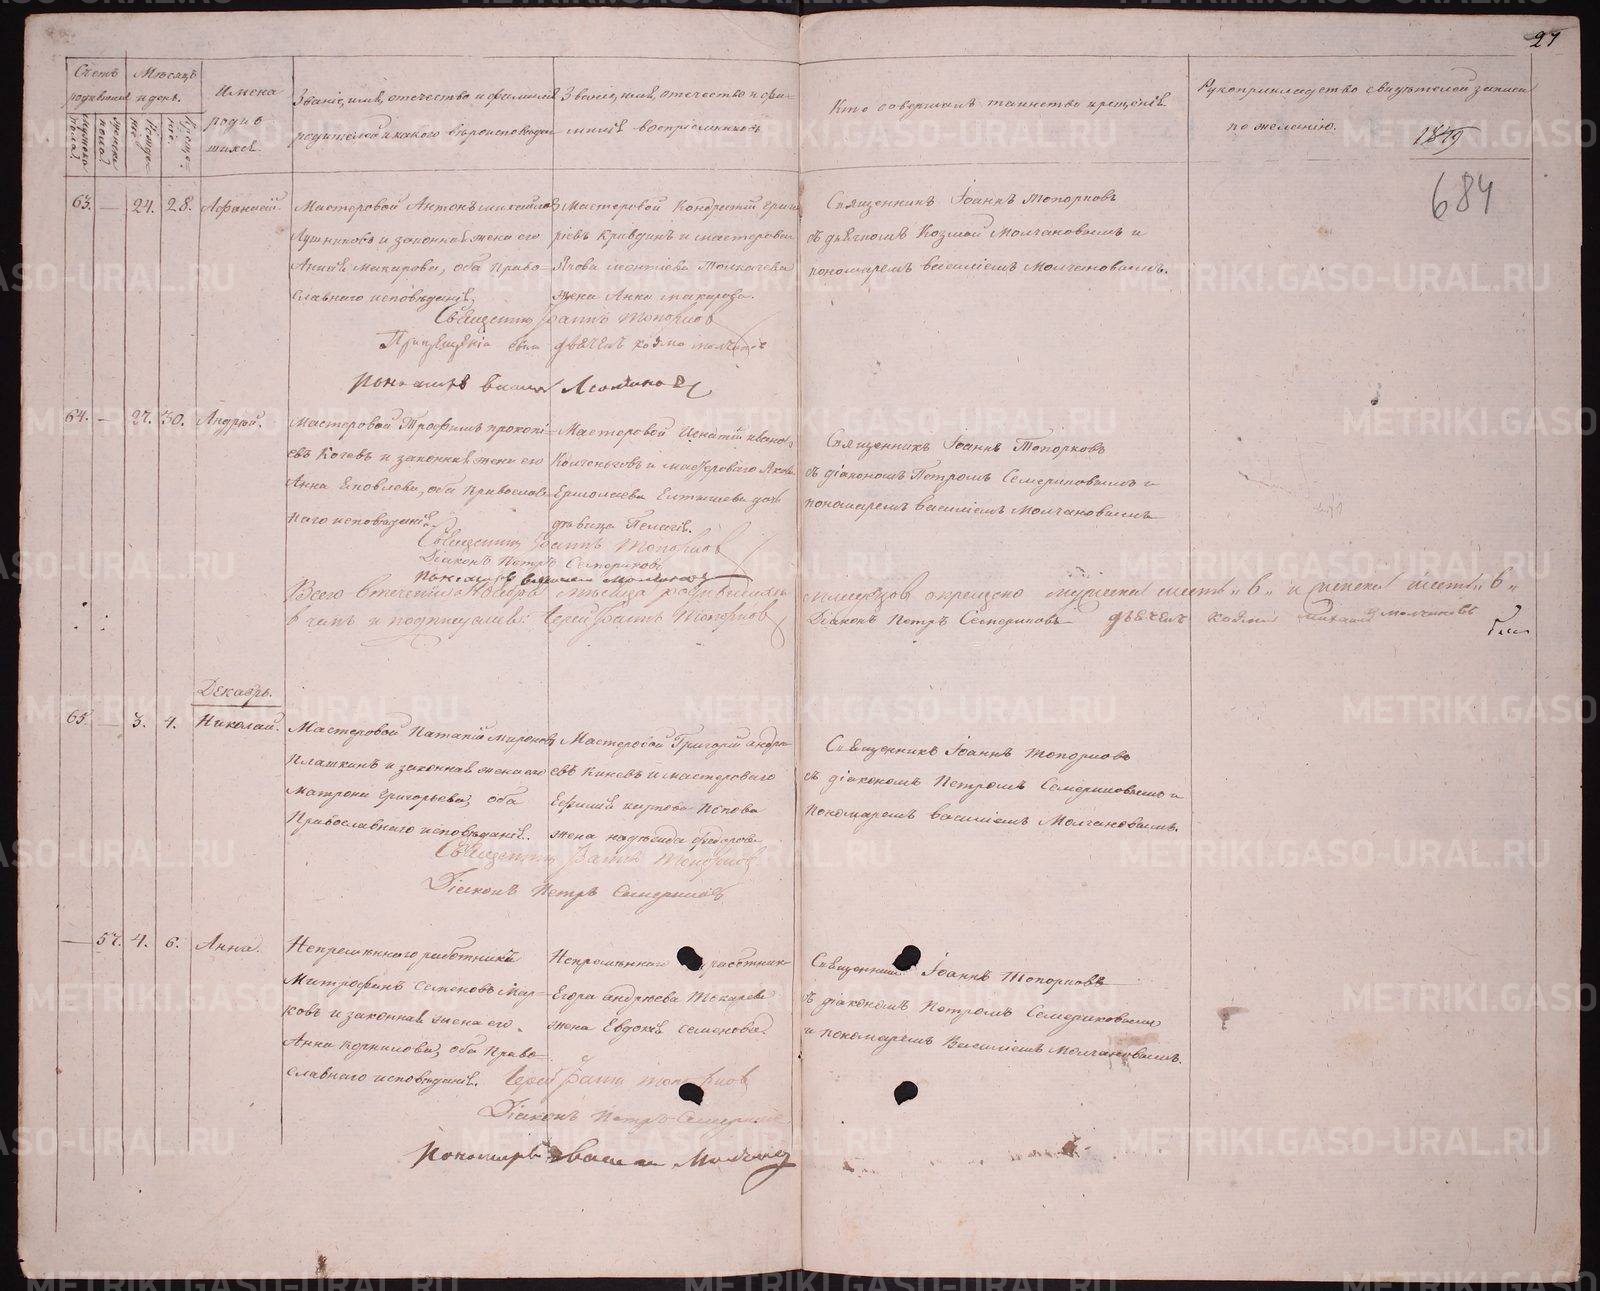 27
Счетъ родившихся
Мѣсяцъ и день.
Имена родившихся.
Званіе, имя, отечество и фамилія родителей и какого вѣроисповѣданія
Званіе, имя, отечество и фамилія воспріемниковъ
Кто совершалъ таинство крещенія.
Рукоприкладство свидѣтелей записи по желанію.
мужеска пола
женска пола
Рожденіе
Крещеніе.
1849
684
63. — 24. 28. Аѳанасій.
Мастеровой Антонъ Михайловъ
Лушниковъ и законная жена его
Анисія Макарова, оба право-
славнаго исповѣданія.
Мастеровой Кондратій Григо-
рьевъ Кривдинъ и мастероваго
Якова Леонтіева Толкачева
жена Анна Макарова.
Священникъ Іоаннъ Топорковъ
съ дьячкомъ Козмой Молчановымъ и
пономаремъ Василіемъ Молчановымъ.
Священникъ Іоаннъ Топорковъ
дьячекъ Козма Молчановъ
Пономарь Василій Молчановъ
64. — 27. 30. Андрей.
Мастеровой Трофимъ Прокопі-
евъ Котевъ и законная жена его
Анна Яковлева, оба православ-
наго исповѣданія.
Мастеровой Игнатій Ивановъ
и мастероваго Якова
Ермолаева Елтышева дочь
дѣвица Пелагія.
Священникъ Іоаннъ Топорковъ
съ діакономъ Петромъ Семериковымъ и
пономаремъ Василіемъ Молчановымъ
Священникъ Іоаннъ Топорковъ
Діаконъ Петръ Семериковъ
Пономарь Василій Молчановъ
Всего въ теченіи Ноября мѣсяца родившихся младенцовъ окрещено мужска шесть „6„ и женска шесть „6„
въ чемъ и подписуемся: Іерей Іоаннъ Топорковъ Діаконъ Петръ Семериковъ дьячекъ Козма Молчановъ
Декабрь.
65. — 3. 4. Николай.
Мастеровой Патапій Мироновъ
Плашкинъ и законная жена его
Матрона Григорьева, оба
Православнаго исповѣданія.
Мастеровой Григорій Андре-
евъ Киневъ и мастероваго
Ефимія Карпова Попова
жена Надежда Федорова
Священникъ Іоаннъ Топорковъ
съ діакономъ Петромъ Семериковымъ и
пономаремъ Василіемъ Молчановымъ.
Священникъ Іоаннъ Топорковъ
Діаконъ Петръ Семериковъ
— 57. 4. 6. Анна.
Непремѣннаго работника
Митрофанъ Семеновъ Мар-
ковъ и законная жена его
Анна Корнилова, оба право-
славнаго исповѣданія.
Непремѣннаго работника
Егора Андреева Токарева
жена Евдокія Семенова.
Священникъ Іоаннъ Топорковъ
съ діакономъ Петромъ Семериковымъ
и пономаремъ Василіемъ Молчановымъ.
Іерей Іоаннъ Топорковъ
Діаконъ Петръ Семериковъ
Пономарь Василій Молчановъ